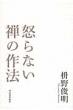 怒らない
禅の作法
枡野俊明